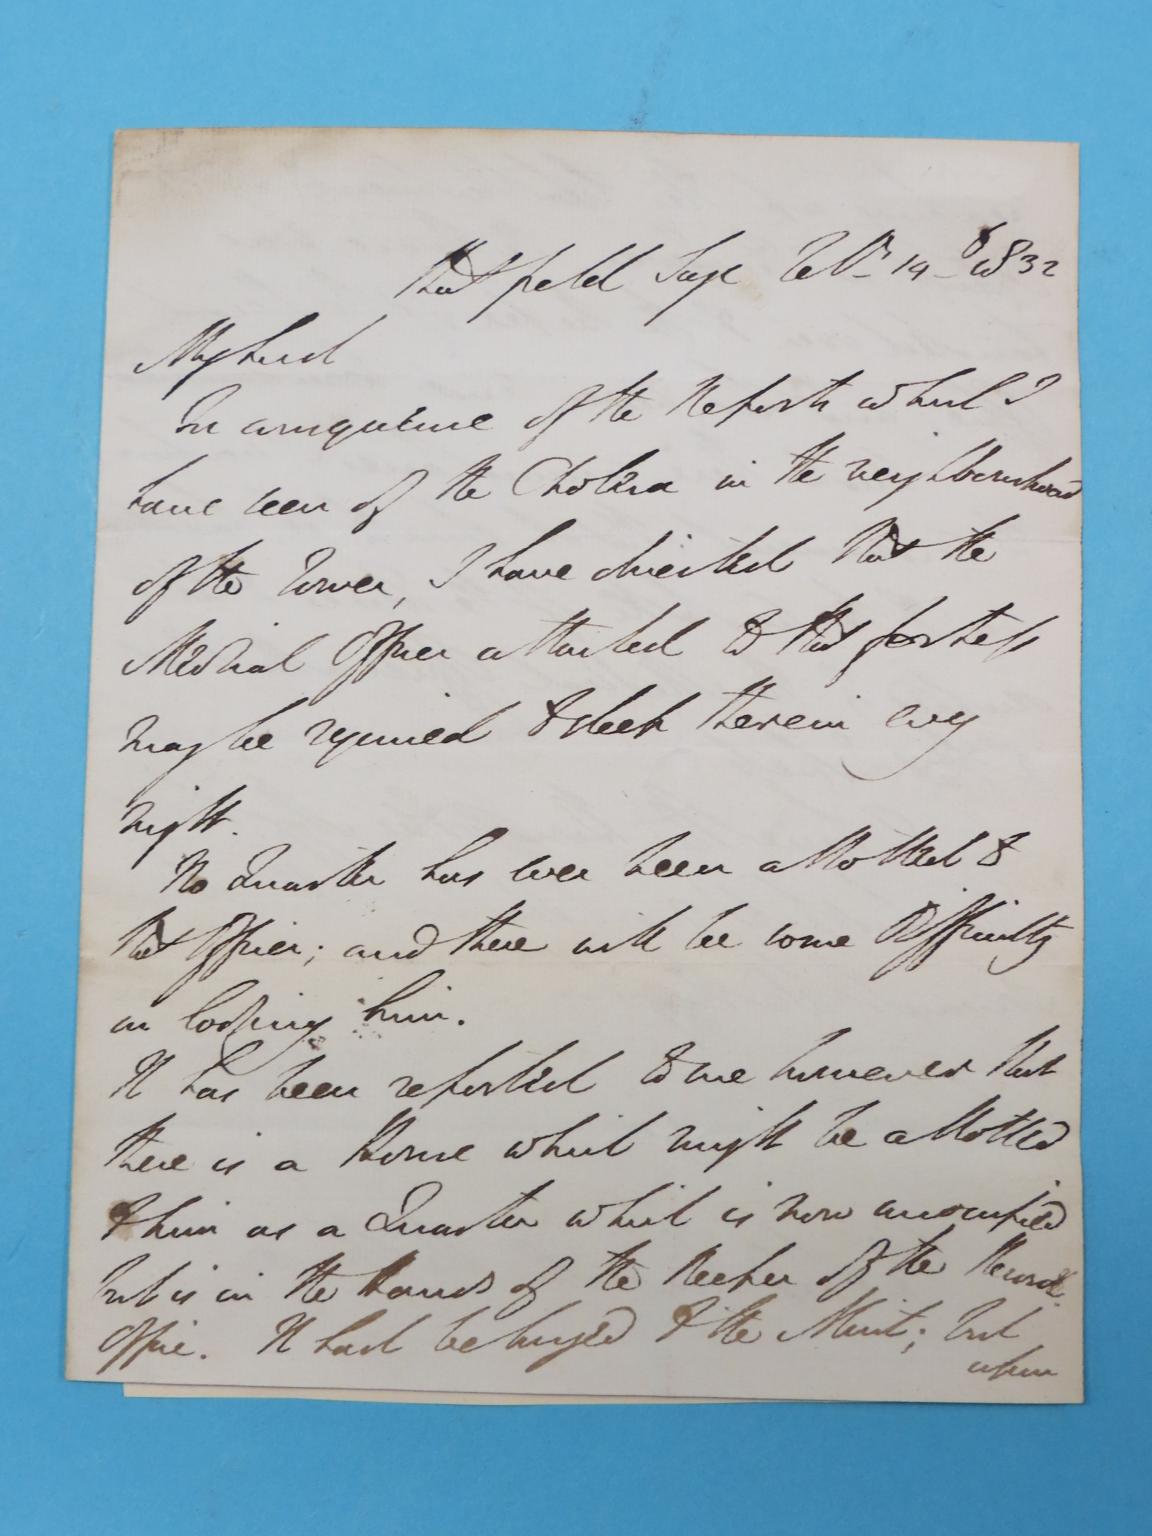 Strathfield Saye Feb. 19 1832
My Lord
In consequence of the Reports which I
have seen of the Cholera in the neighbourhood
of the Tower, I have directed that the
Medical Officer attached to that fortress
may be required to sleep therein every
night.
No Quarter has ever been allotted to
that Officer; and there will be some difficulty
in lodging him.
It has been reported to me however that
there is a House which might be allotted
to him as a Quarter which is now unoccupied
but is in the hands of the Keeper of the Record
Office. It had belonged to the Mint; but
upon